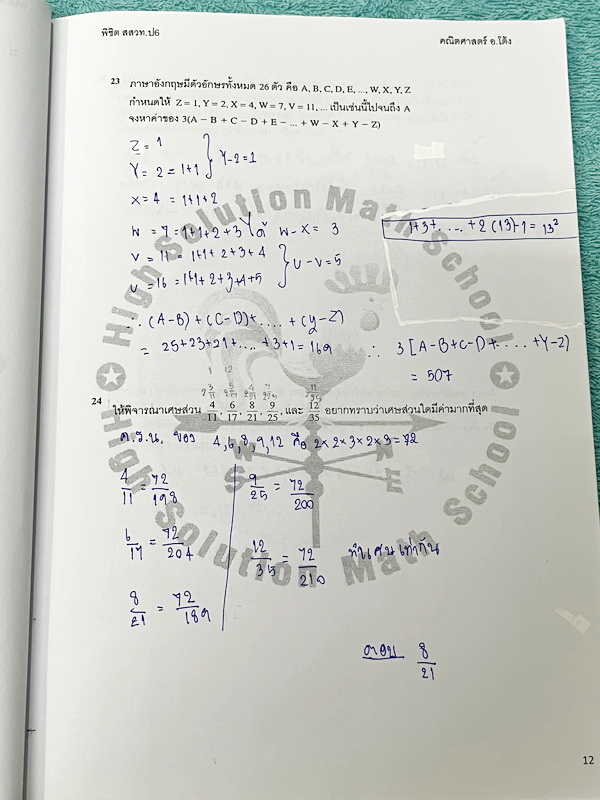 พิชิต สสวท.ป6
คณิตศาสตร์ อ.โต้ง
23 ภาษาอังกฤษมีตัวอักษรทั้งหมด 26 ตัว คือ A, B, C, D, E, ..., W, X, Y, Z
กำหนดให้ Z = 1, Y = 2, X = 4, W = 7, V = 11, ... เป็นเช่นนี้ไปจนถึง A
จงหาค่าของ 3(A − B + C − D + E − ... + W − X + Y − Z)
Z = 1
Y = 2 = 1+1 } Y-2=1
X=4 = 1+1+2
W = 7 = 1+1+2+3 ได้ W-X = 3
V = 11 = 1+1+2+3+4
U = 16 = 1+1+2+3+4+5 } U-V=5
1+3+.....+2(13)-1 = 13²
∴ (A-B)+(C-D)+.....+(Y-Z)
= 25+23+21+.....+3+1=169 ∴ 3[A-B+C-D+.....+Y-Z)
= 507
24 ให้พิจารณาเศษส่วน 4/11, 6/17, 8/21, 9/25, และ 12/35 อยากทราบว่าเศษส่วนใดมีค่ามากที่สุด
ค.ร.น. ของ 4,6,8,9,12 คือ 2×2×3×2×3=72
4/11 = 72/198 9/25 = 72/200
6/17 = 72/204 12/35 = 72/210 ทำเศษเท่ากัน
8/21 = 72/189
ตอบ 8/21
High Solution Math School
High Solution Math School
W S N E
12